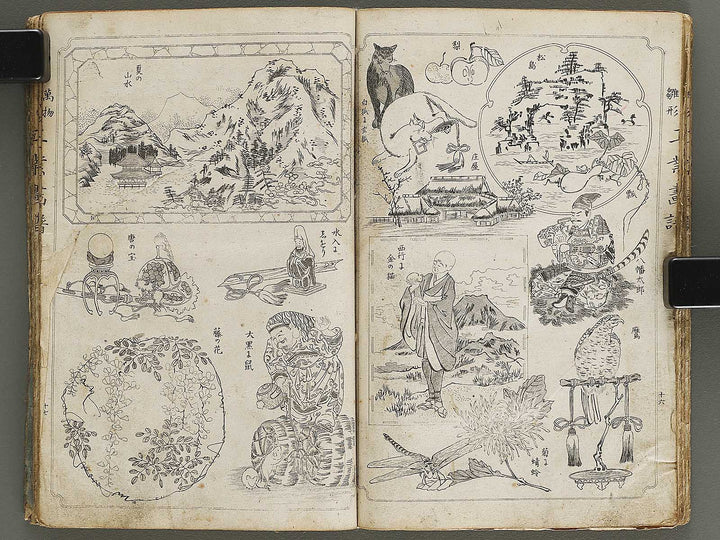 雛形
工業畫譜
十六
梨
松島
庄屋
瓢
八幡太郎
西行に
金の猫
鷹
菊に
蜻蛉
夏の
山水
水入に
唐の宝
藤の花
大黒に鼠
萬物
十七